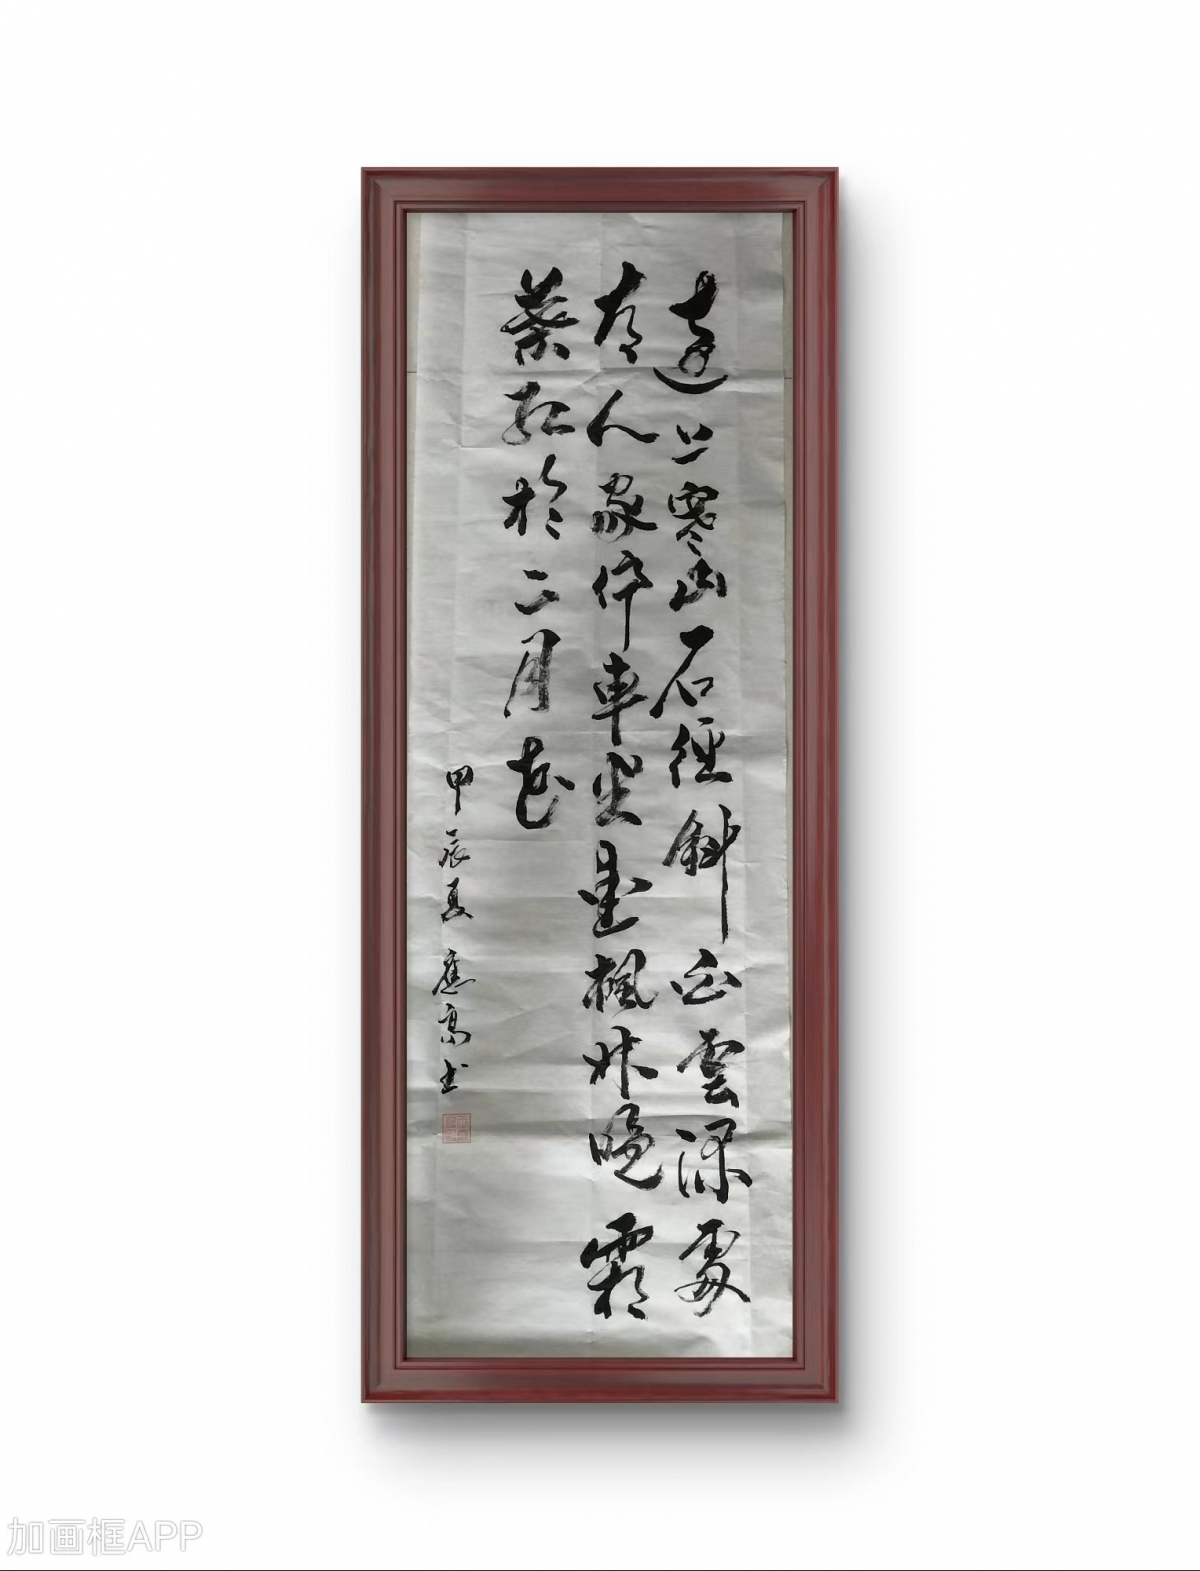 遠上寒山石徑斜白雲深處
有人家停車坐愛楓林晚霜
葉紅於二月花
甲辰夏 應高书
加画框APP